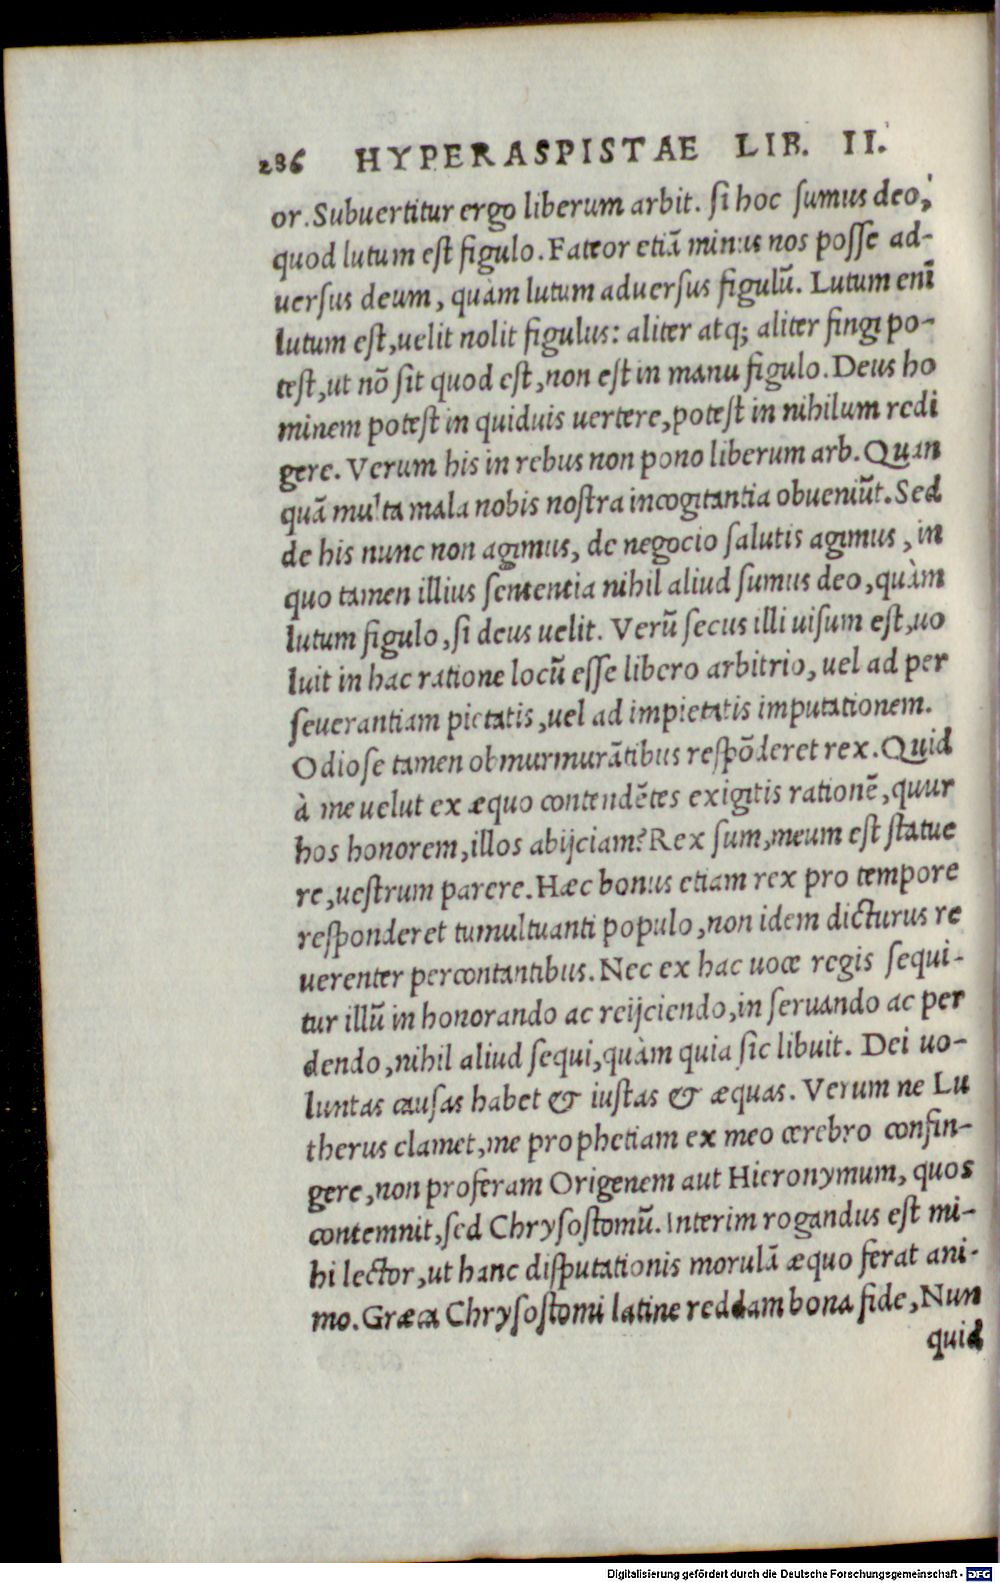 286 HYPERASPISTAE LIB. II.
or. Subuertitur ergo liberum arbit. si hoc sumus deo,
quod lutum est figulo. Fateor etiã minus nos posse ad-
uersus deum, quàm lutum aduersus figulũ. Lutum enĩ
lutum est, uelit nolit figulus: aliter atq; aliter fingi po-
test, ut nõ sit quod est, non est in manu figulo. Deus ho
minem potest in quiduis uertere, potest in nihilum redi
gere. Verum his in rebus non pono liberum arb. Quan
quã multa mala nobis nostra incogitantia obueniũt. Sed
de his nunc non agimus, de negocio salutis agimus, in
quo tamen illius sententia nihil aliud sumus deo, quàm
lutum figulo, si deus uelit. Verũ secus illi uisum est, uo
luit in hac ratione locũ esse libero arbitrio, uel ad per
seuerantiam pietatis, uel ad impietatis imputationem.
Odiose tamen obmurmurãtibus respõderet rex. Quid
à me uelut ex æquo contendẽtes exigitis rationẽ, quur
hos honorem, illos abijciam? Rex sum, meum est statue
re, uestrum parere. Hæc bonus etiam rex pro tempore
responderet tumultuanti populo, non idem dicturus re
uerenter percontantibus. Nec ex hac uoce regis sequi-
tur illũ in honorando ac reijciendo, in seruando ac per
dendo, nihil aliud sequi, quàm quia sic libuit. Dei uo-
luntas causas habet & iustas & æquas. Verum ne Lu
therus clamet, me prophetiam ex meo cerebro confin-
gere, non proferam Origenem aut Hieronymum, quos
contemnit, sed Chrysostomũ. Interim rogandus est mi-
hi lector, ut hanc disputationis morulã æquo ferat ani-
mo. Græca Chrysostomi latine reddam bona fide, Nun
quid
Digitalisierung gefördert durch die Deutsche Forschungsgemeinschaft - DFG